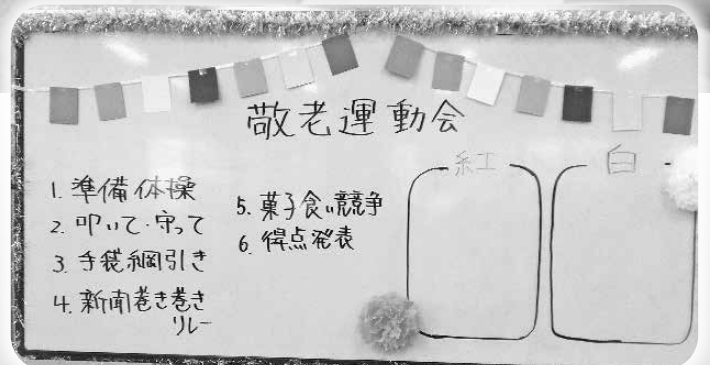 敬老運動会
1. 準備体操
2. 叩いて・守って
3. 手袋綱引き
4. 新聞巻き巻き
リレー
5. 菓子食い競争
6. 得点発表
紅
白